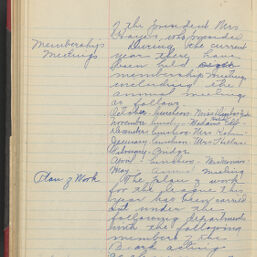 of the President Mrs
Hayes, who presided
Membership
Meetings
During the current
year there have
been held eight
membership meetings
including the
annual meeting
as follows
October - luncheon -
November luncheon -
December luncheon - Mrs
January luncheon - Mrs
February - Bridge
April - luncheon -
May - annual meeting
Plan of Work
The plan of work
for the league this
year has been carried
out under the
following departments
with the following
members of the
Board acting